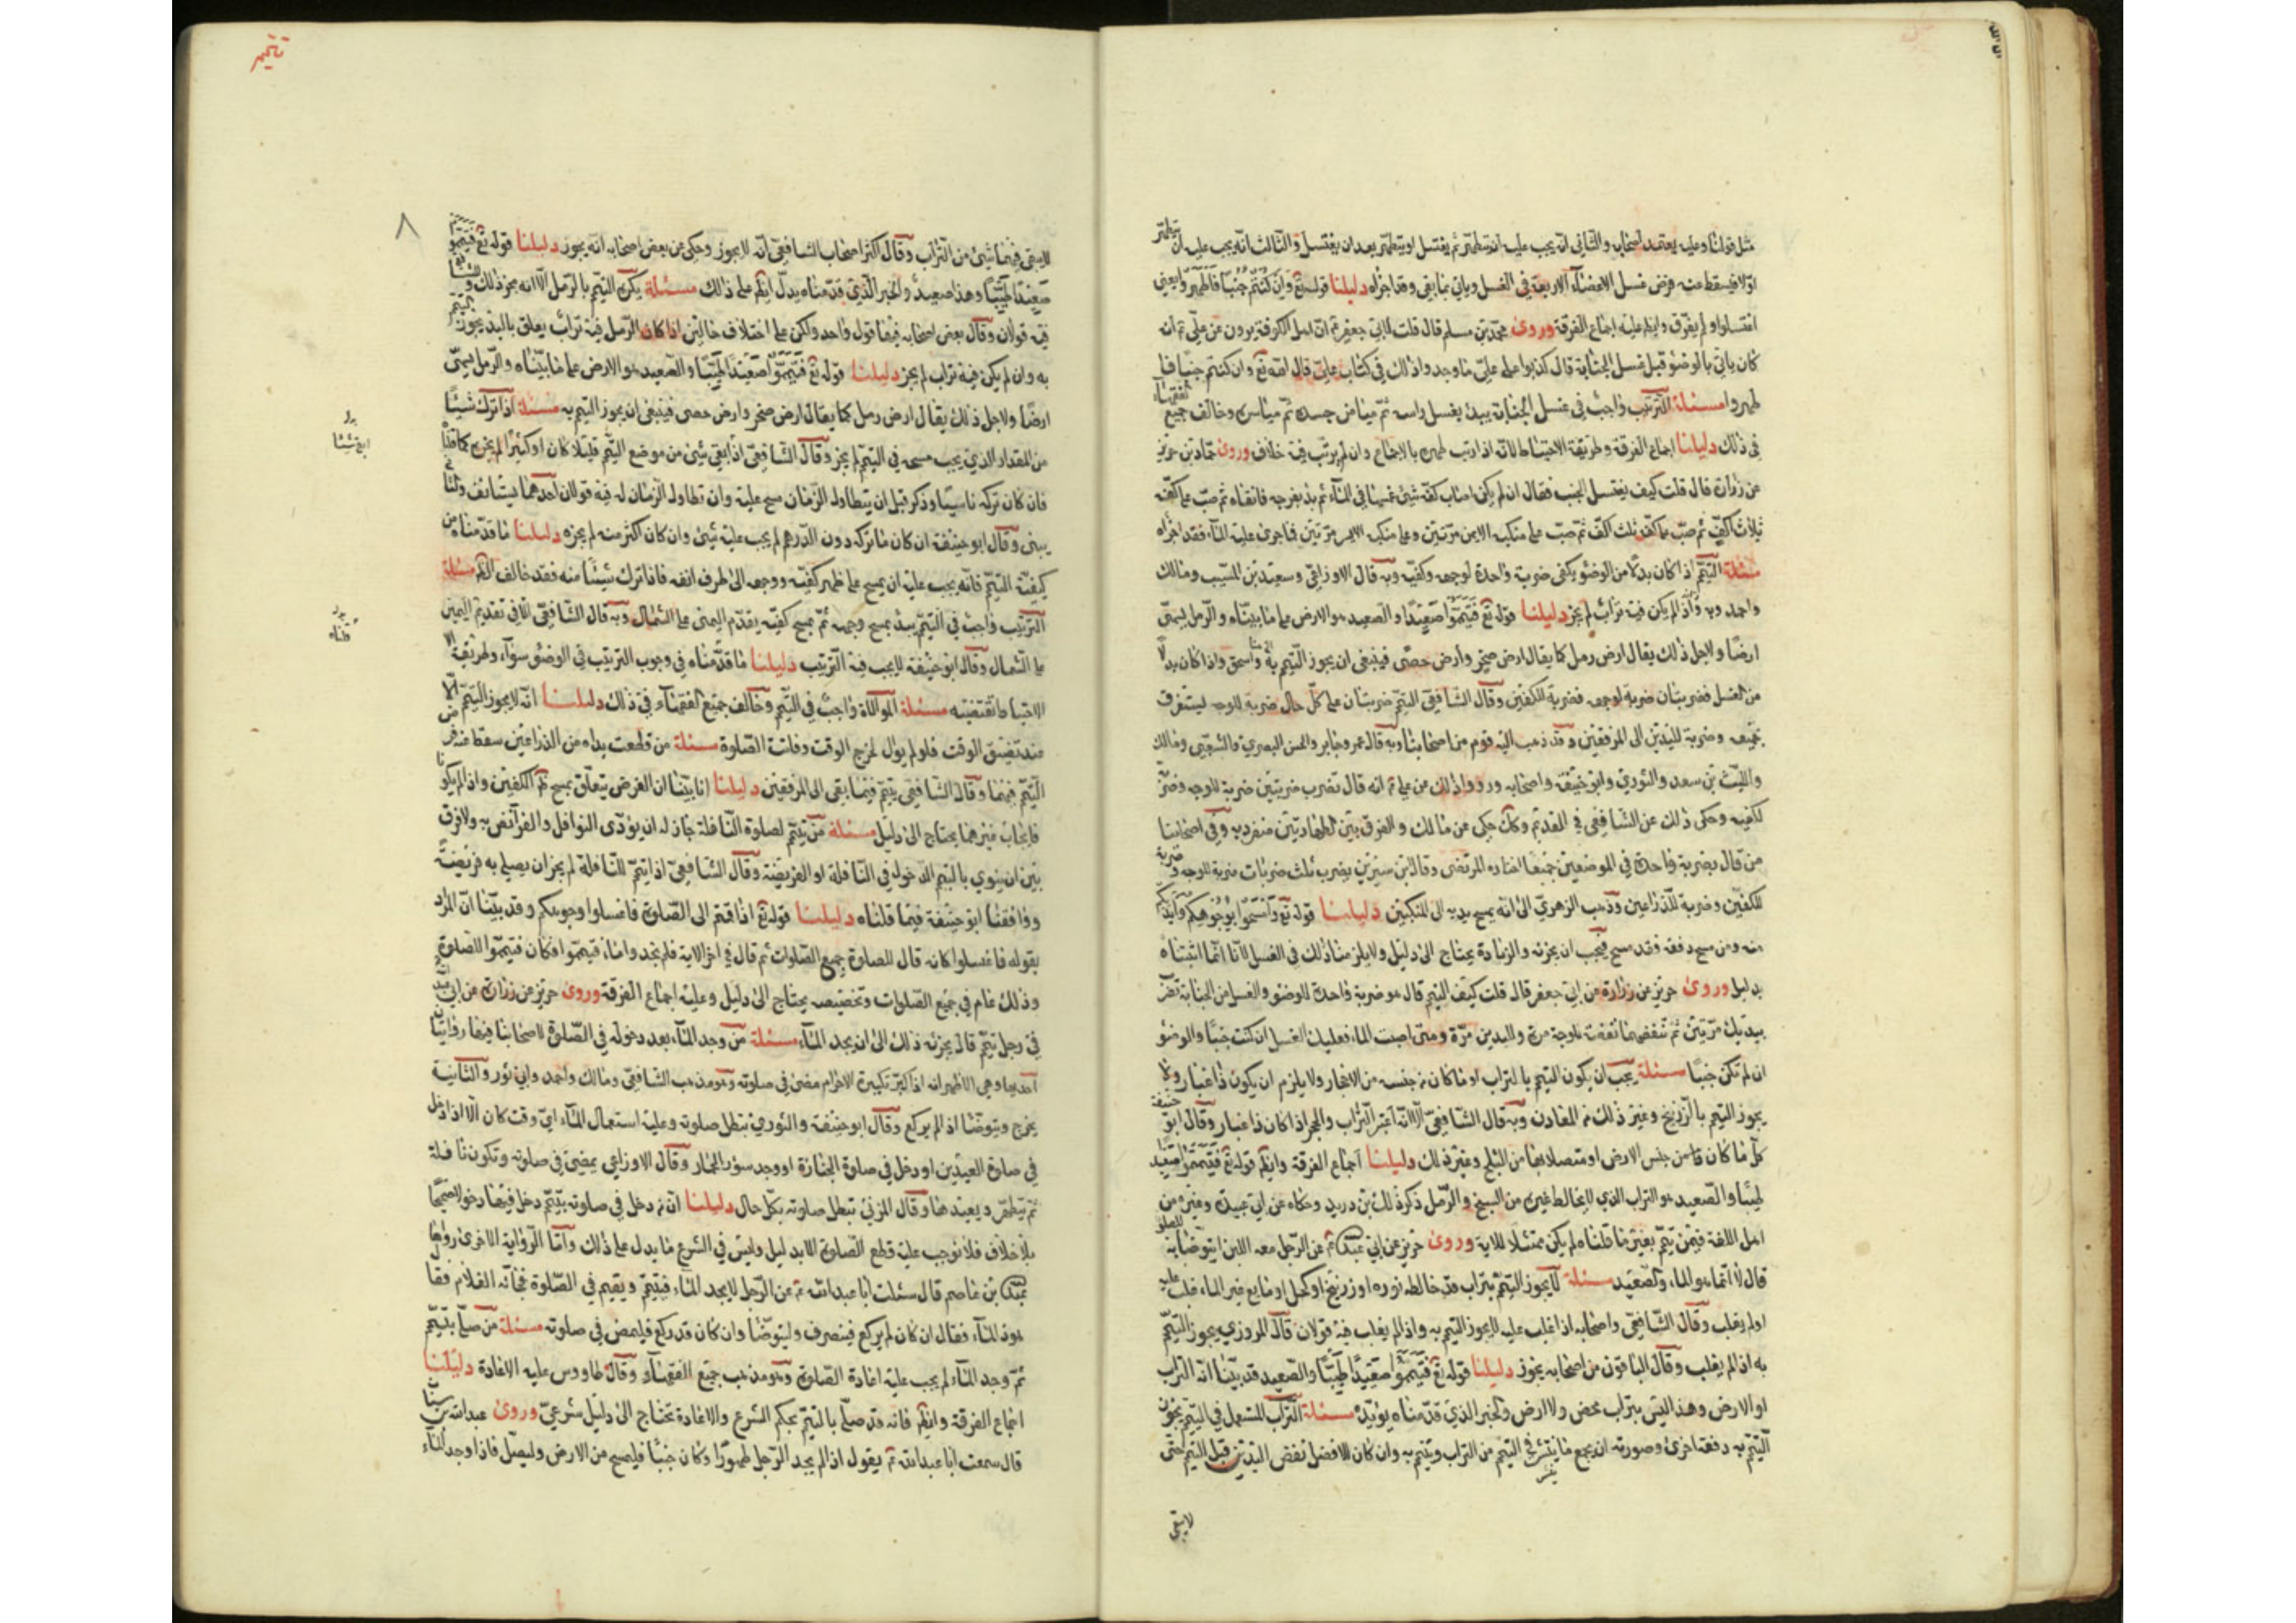 مثل قولنا وعليه يعتمد اصحابه والثاني انه يجب عليه ان يتطهر ثم يغتسل او يتطهر بعد ان يغتسل والثالث انه يجب عليه ان يتطهر
اولا فيسقط عنه فرض غسل الاعضاء الاربعة في الغسل وياتي بما بقي وقد اجزاه دليلنا قوله تع وان كنتم جنبا فاطهروا يعني
اغتسلوا ولم يفرق وايضا عليه اجماع الفرقة وروى محمد بن مسلم قال قلت لابي جعفر ع ان اهل الكوفة يروون عن علي ع انه
كان ياتي بالوضوء قبل غسل الجنابة قال كذبوا على علي ما وجدوا ذلك في كتاب علي قال الله تع وان كنتم جنبا فا
طهروا مسئلة الترتيب واجب في غسل الجنابة يبدء بغسل راسه ثم ميامن جسده ثم مياسره وخالف جميع الفقهاء
في ذلك دليلنا اجماع الفرقة وطريقة الاحتياط لانه اذا رتب طهره بالاجماع وان لم يرتب فيه خلاف وروى حماد بن حريز
عن زرارة قال قلت كيف يغتسل الجنب فقال ان لم يكن اصاب كفه شئ غمسها في الماء ثم بدء بفرجه فانقاه ثم صب على
ثلاث اكف ثم صب على منكبه الايمن مرتين وعلى منكبه الايسر مرتين فما جرى عليه الماء فقد اجزاه
مسئلة التيمم اذا كان بدلا من الوضوء يكفي ضربة واحدة لوجهه وكفيه وبه قال الاوزاعي وسعيد بن المسيب ومالك
واحمد واذا لم يكن فيه تراب لم يجز دليلنا قوله تع فتيمموا صعيدا والصعيد هو الارض على ما بيناه والرمل يسمى
ارضا ولاجل ذلك يقال ارض رمل كما يقال ارض صخر وارض حصى فينبغي ان يجوز التيمم به واسحق واذا كان بدلا
من الغسل فضربتان ضربة لوجهه وضربة للكفين وقال الشافعي التيمم ضربتان على كل حال ضربة للوجه ليستغرق
جميعه وضربة لليدين الى المرفقين وقد ذهب اليه قوم من اصحابنا وبه قال عمر وجابر والحسن البصري والشعبي ومالك
والليث بن سعد والثوري وابو حنيفة واصحابه ورووا ذلك عن علي ع انه قال تضرب ضربتين ضربة للوجه وضربة
لكفيه وحكى ذلك عن الشافعي في القديم وكان حكى عن مالك والفرق بين الطهارتين منفرد به وفي اصحابنا
من قال بضربة واحدة في الموضعين جميعا اختاره المرتضى وقال بن سيرين يضرب ثلث ضربات ضربة للوجه وضربة
للكفين وضربة للذراعين وذهب الزهري الى انه يمسح يديه الى المنكبين دليلنا قوله تع وامسحوا بوجوهكم وايديكم
منه ومن مسح دفعة فقد مسح فيجب ان يجزئه والزيادة يحتاج الى دليل ولا يلزمنا ذلك في الغسل لانا انما اثبتناه
بدليل وروى حريز عن زرارة عن ابي جعفر قال قلت كيف التيمم قال هو ضربة واحدة للوضوء والغسل من الجنابة تضرب
بيديك مرتين ثم تنفضهما نفضة للوجه مرة ولليدين مرة ومتى اصبت الماء فعليك الغسل ان كنت جنبا والوضوء
ان لم تكن جنبا مسئلة يجب ان يكون التيمم بالتراب او ما كان من جنسه من الاحجار ولا يلزم ان يكون ذا غبار ولا
يجوز التيمم بالزرنيخ وغير ذلك من المعادن وبه قال الشافعي الا انه اعتبر التراب والحجر اذا كان ذا غبار وقال ابو حنيفة
كل ما كان من جنس الارض او متصلا بها من الثلج وغير ذلك دليلنا اجماع الفرقة وايضا قوله تع فتيمموا صعيدا
طيبا والصعيد هو التراب الذي لا يخالط غيره من السبخ والرمل ذكر ذلك بن دريد وحكاه عن ابي عبيدة وغيره من
اهل اللغة فمن تيمم بغير ما قلناه لم يكن ممتثلا للاية وروى حريز عن ابي عبد الله ع عن الرجل معه اللبن ايتوضا به للصلوة
قال لا انما هو الماء والصعيد مسئلة لا يجوز التيمم بتراب قد خالطه نورة او زرنيخ او كحل او مايع غير الماء غلب عليه
او لم يغلب وقال الشافعي واصحابه اذا غلب عليه لا يجوز التيمم به واذا لم يغلب فيه قولان قال المروزي يجوز التيمم
به اذا لم يغلب وقال الباقون من اصحابه يجوز دليلنا قوله تع فتيمموا صعيدا طيبا والصعيد قد بينا انه التراب
او الارض وهذا ليس بتراب محض ولا ارض والخبر الذي قدمناه يؤيده مسئلة التراب المستعمل في التيمم يجوز
التيمم به دفعة اخرى وصورته ان يجمع ما ينتثر في التيمم من التراب ويتيمم به وان كان الافضل نفض اليدين قبل التيمم حتى
لا يبقى
تتميم
٨
لا يبقى فيهما شئ من التراب وقال اكثر اصحاب الشافعي انه لا يجوز وحكى عن بعض اصحابه انه يجوز دليلنا قوله تع فتيمموا
صعيدا طيبا وهذا صعيد والخبر الذي قدمناه يدل ايضا على ذلك مسئلة يكره التيمم بالرمل الا انه يجز ذلك
فيه قولان وقال بعض اصحابه فيها قول واحد ولكن على اختلاف حالين اذا كان الرمل فيه تراب يعلق باليد يجوز التيمم
به وان لم يكن فيه تراب لم يجز دليلنا قوله تع فتيمموا صعيدا طيبا والصعيد هو الارض على ما بيناه والرمل يسمى
ارضا ولاجل ذلك يقال ارض رمل كما يقال ارض صخر وارض حصى فينبغي ان يجوز التيمم به مسئلة اذا ترك شيئا
من المقدار الذي يجب مسحه في التيمم لم يجز وقال الشافعي اذا بقي شئ من موضع التيمم قليلا كان او كثيرا لم يجزه كما قلناه
فان كان تركه ناسيا وذكر قبل ان يتطاول الزمان مسح عليه وان تطاول الزمان له فيه قولان احدهما يستانف والثاني
يبنى وقال ابو حنيفة ان كان ما تركه دون الدرهم لم يجب عليه شئ وان كان اكثر منه لم يجزه دليلنا ما قدمناه من
كيفية التيمم فانه يجب عليه ان يمسح على ظهر كفيه ووجهه الى طرف انفه فاذا ترك شيئا منه فقد خالف الظاهر مسئلة
الترتيب واجب في التيمم يبدء بمسح وجهه ثم بمسح كفيه يقدم اليمنى على الشمال وبه قال الشافعي الا في تقديم اليمين
على الشمال وقال ابو حنيفة لا يجب فيه الترتيب دليلنا ما قدمناه في وجوب الترتيب في الوضوء سواء وطريقة
الاحتياط تقتضيه مسئلة الموالاة واجب في التيمم وخالف جميع الفقهاء في ذلك دليلنا انه لا يجوز التيمم الا
عند تضيق الوقت فلو لم يوال لخرج الوقت وفاتته الصلوة مسئلة من قطعت يداه من الذراعين سقط عنه فرض
التيمم فيهما وقال الشافعي يتيمم فيما بقي الى المرفقين دليلنا انا بينا ان الفرض يتعلق بمسح ظهر الكفين واذا لم يكونا
فايجاب غيرهما يحتاج الى دليل مسئلة من تيمم لصلوة النافلة جاز له ان يؤدي النوافل والفرائض به ولا فرق
بين ان ينوي بالتيمم الدخول في النافلة او الفريضة وقال الشافعي اذا تيمم للنافلة لم يجز ان يصلي به فريضة
ووافقنا ابو حنيفة فيما قلناه دليلنا قوله تع اذا قمتم الى الصلوة فاغسلوا وجوهكم وقد بينا ان المراد
بقوله فاغسلوا كانه قال للصلوة جميع الصلوات ثم قال في اخر الاية فلم تجدوا ماء فتيمموا فكان فتيمموا للصلوة
وذلك عام في جميع الصلوات وتخصيصه يحتاج الى دليل وعليه اجماع الفرقة وروى حريز عن زرارة عن ابي عبد الله
في رجل تيمم قال يجزئه ذلك الى ان يجد الماء مسئلة من وجد الماء بعد دخوله في الصلوة لاصحابنا فيها روايتان
احديهما وهي الاظهر انه اذا كبر تكبيرة الاحرام مضى في صلوته وهو مذهب الشافعي ومالك واحمد وابي ثور والثانية
يخرج ويتوضا اذا لم يركع وقال ابو حنيفة والثوري تبطل صلوته وعليه استعمال الماء اي وقت كان الا اذا دخل
في صلوة العيدين او دخل في صلوة الجنازة او وجد سؤر الحمار وقال الاوزاعي يمضي في صلوته وتكون نافلة
ثم يتطهر ويعيدها وقال المزني تبطل صلوته بكل حال دليلنا ان من دخل في صلوته بتيمم دخل فيها دخولا صحيحا
بلا خلاف فلا نوجب عليه قطع الصلوة الا بدليل وليس في الشرع ما يدل على ذلك واما الرواية الاخرى رواها
عبد الله بن عاصم قال سئلت ابا عبد الله ع عن الرجل لا يجد الماء فيتيمم ويقيم في الصلوة فجائه الغلام فقال
هوذا الماء فقال ان كان لم يركع فينصرف وليتوضا وان كان قد ركع فليمض في صلوته مسئلة من صلى بتيمم
ثم وجد الماء لم يجب عليه اعادة الصلوة وهو مذهب جميع الفقهاء وقال طاووس عليه الاعادة دليلنا
اجماع الفرقة وايضا فانه قد صلى بالتيمم بحكم الشرع والاعادة تحتاج الى دليل شرعي وروى عبد الله بن سنان
قال سمعت ابا عبد الله ع يقول اذا لم يجد الرجل طهورا وكان جنبا فليمسح من الارض وليصل فاذا وجد الماء